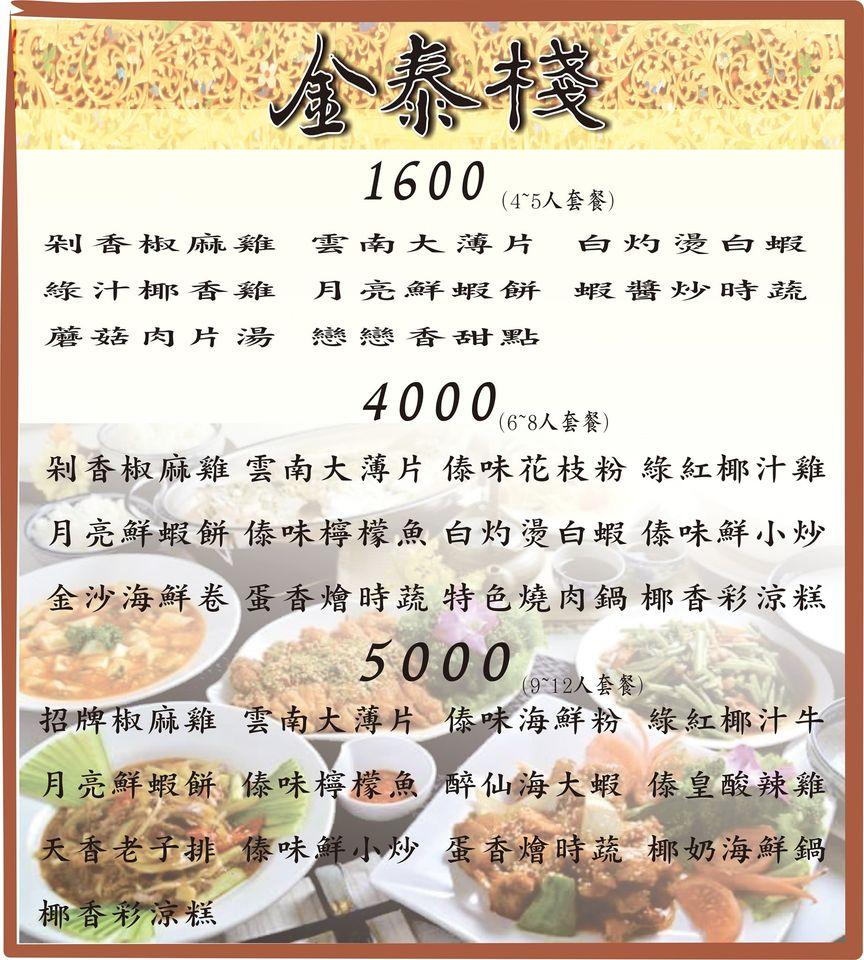 金泰棧
1600 (4~5人套餐)
剁香椒麻雞 雲南大薄片 白灼燙白蝦
綠汁椰香雞 月亮鮮蝦餅 蝦醬炒時蔬
蘑菇肉片湯 戀戀香甜點
4000 (6~8人套餐)
剁香椒麻雞 雲南大薄片 傣味花枝粉 綠紅椰汁雞
月亮鮮蝦餅 傣味檸檬魚 白灼燙白蝦 傣味鮮小炒
金沙海鮮卷 蛋香燴時蔬 特色燒肉鍋 椰香彩涼糕
5000 (9~12人套餐)
招牌椒麻雞 雲南大薄片 傣味海鮮粉 綠紅椰汁牛
月亮鮮蝦餅 傣味檸檬魚 醉仙海大蝦 傣皇酸辣雞
天香老子排 傣味鮮小炒 蛋香燴時蔬 椰奶海鮮鍋
椰香彩涼糕